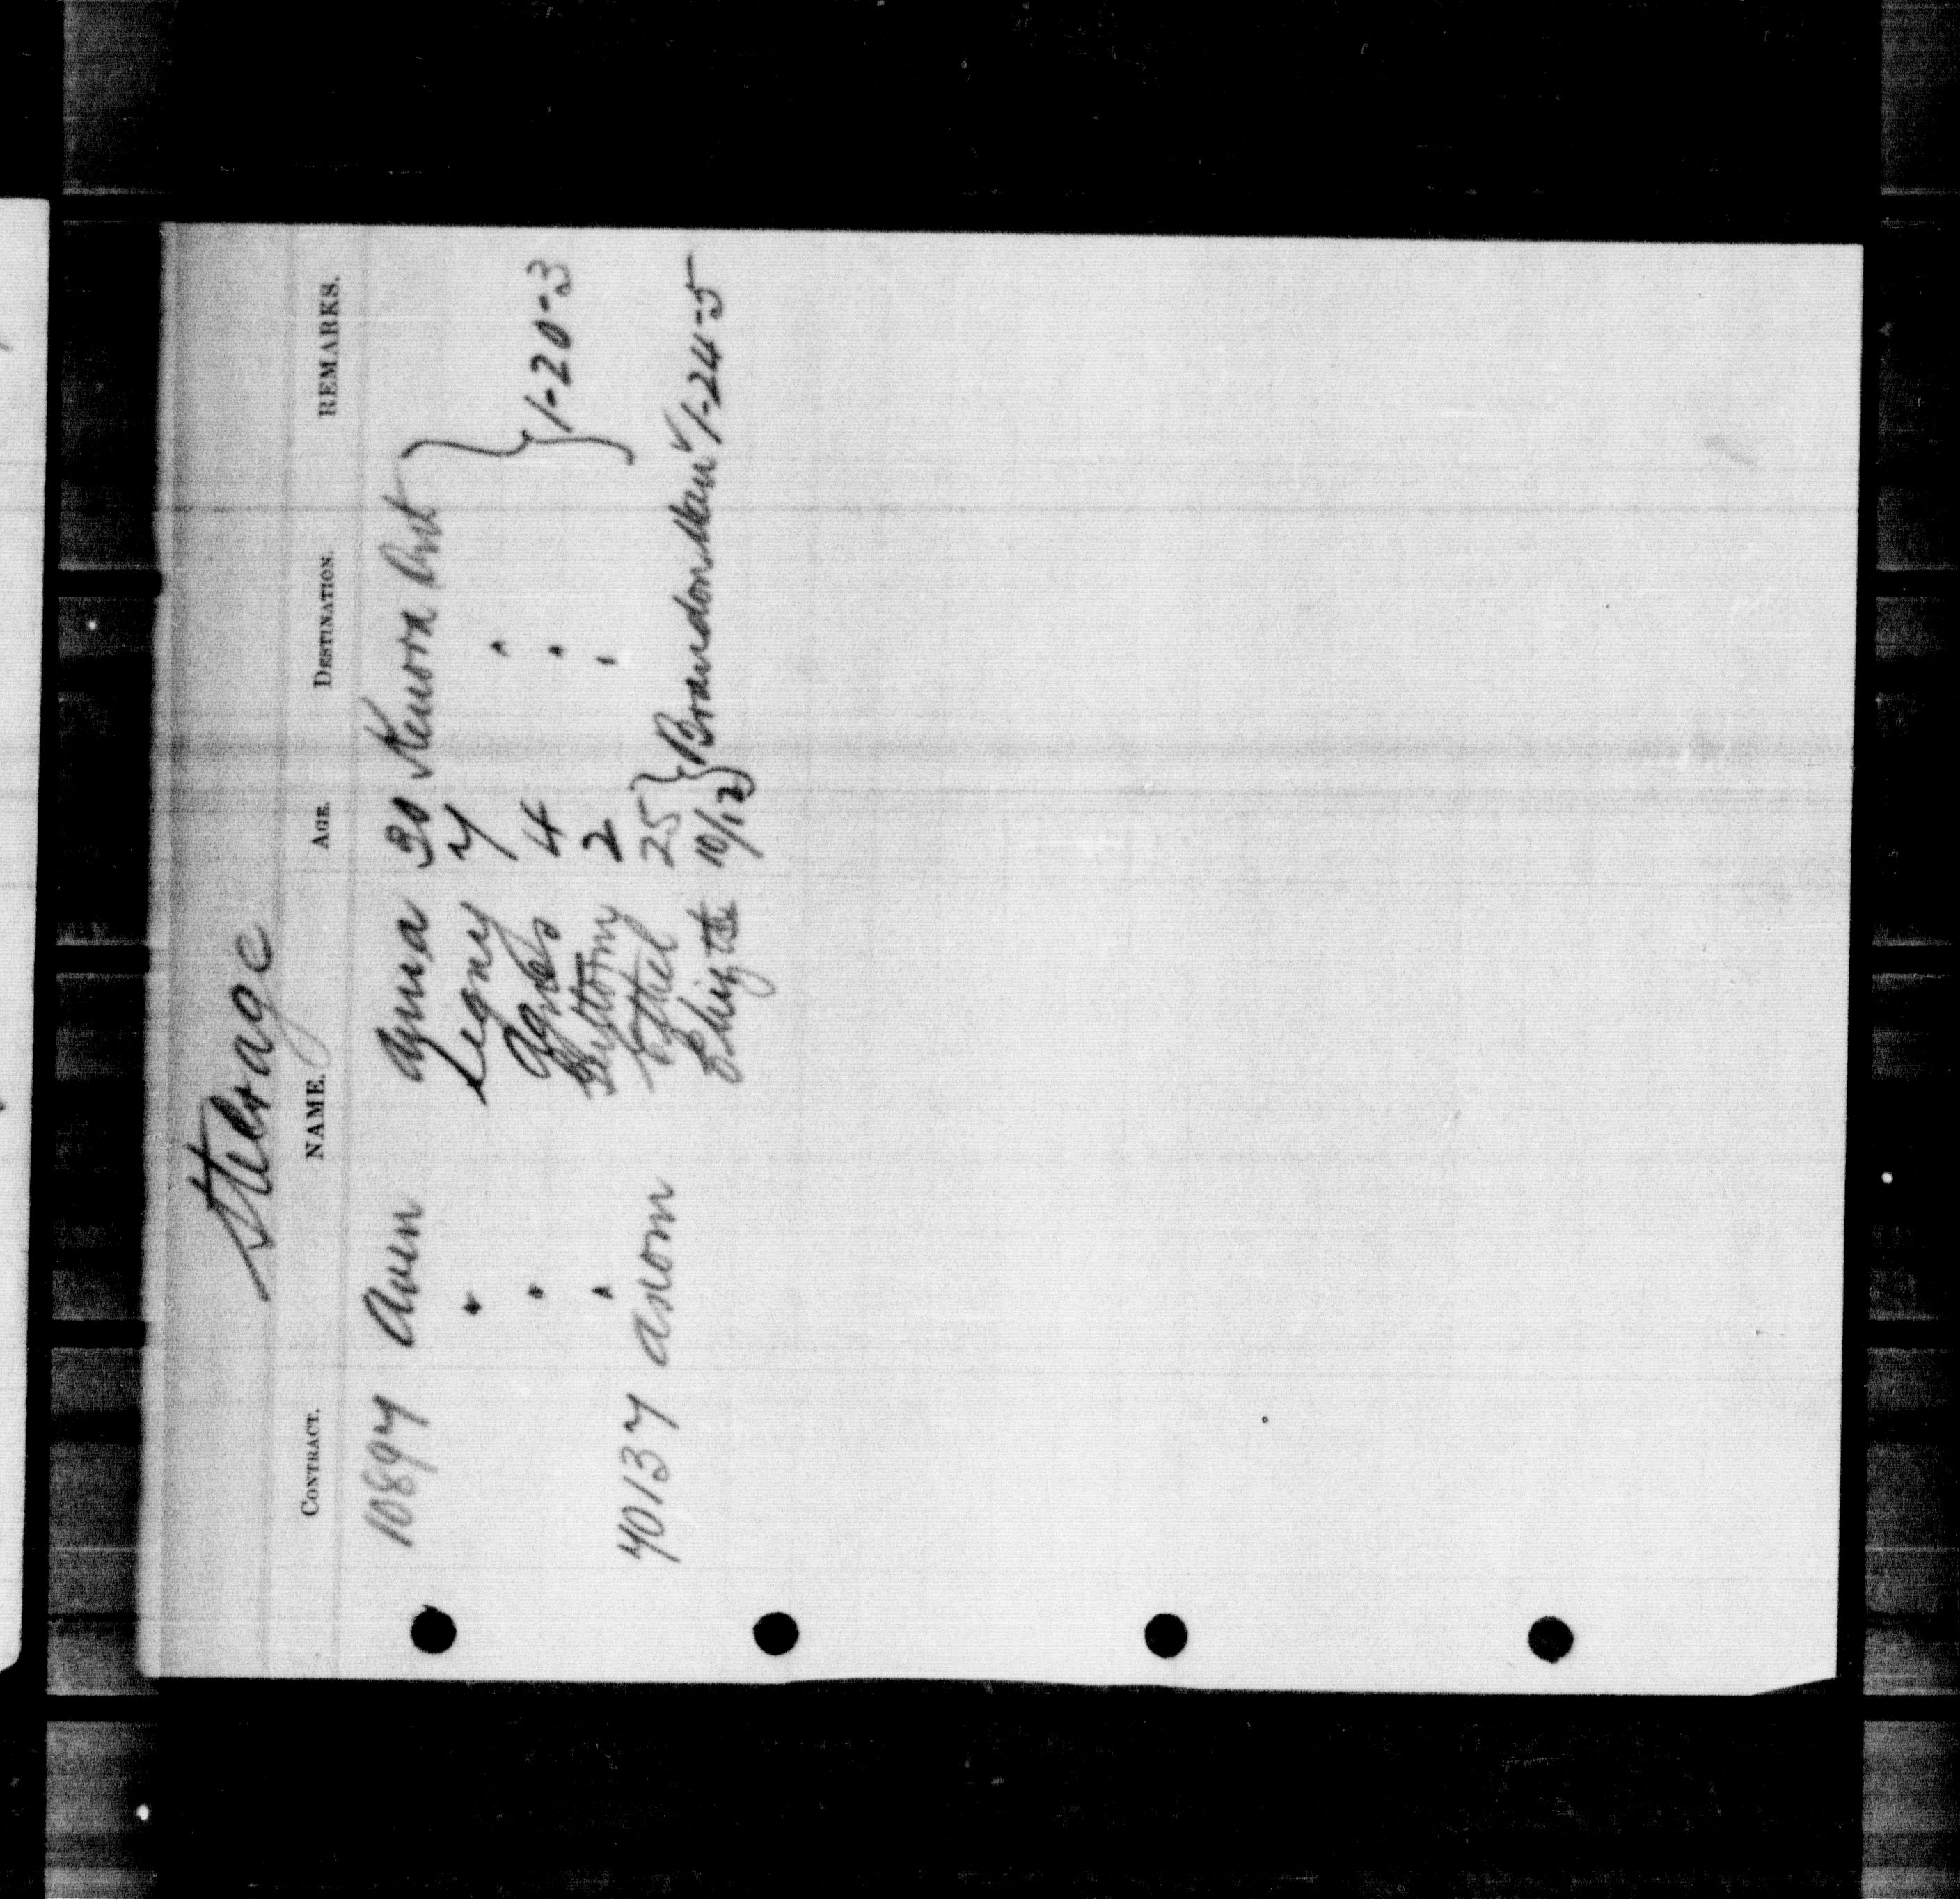 Steerage
CONTRACT. NAME. AGE. DESTINATION. REMARKS.
10897 Aven Anna 30 Kenora Ont
" Signy 7 "
" Agnes 4 " 1-20-3
" 2 "
40137 Axiom Ethel 25
10/12 Brandon Man 1-24-5